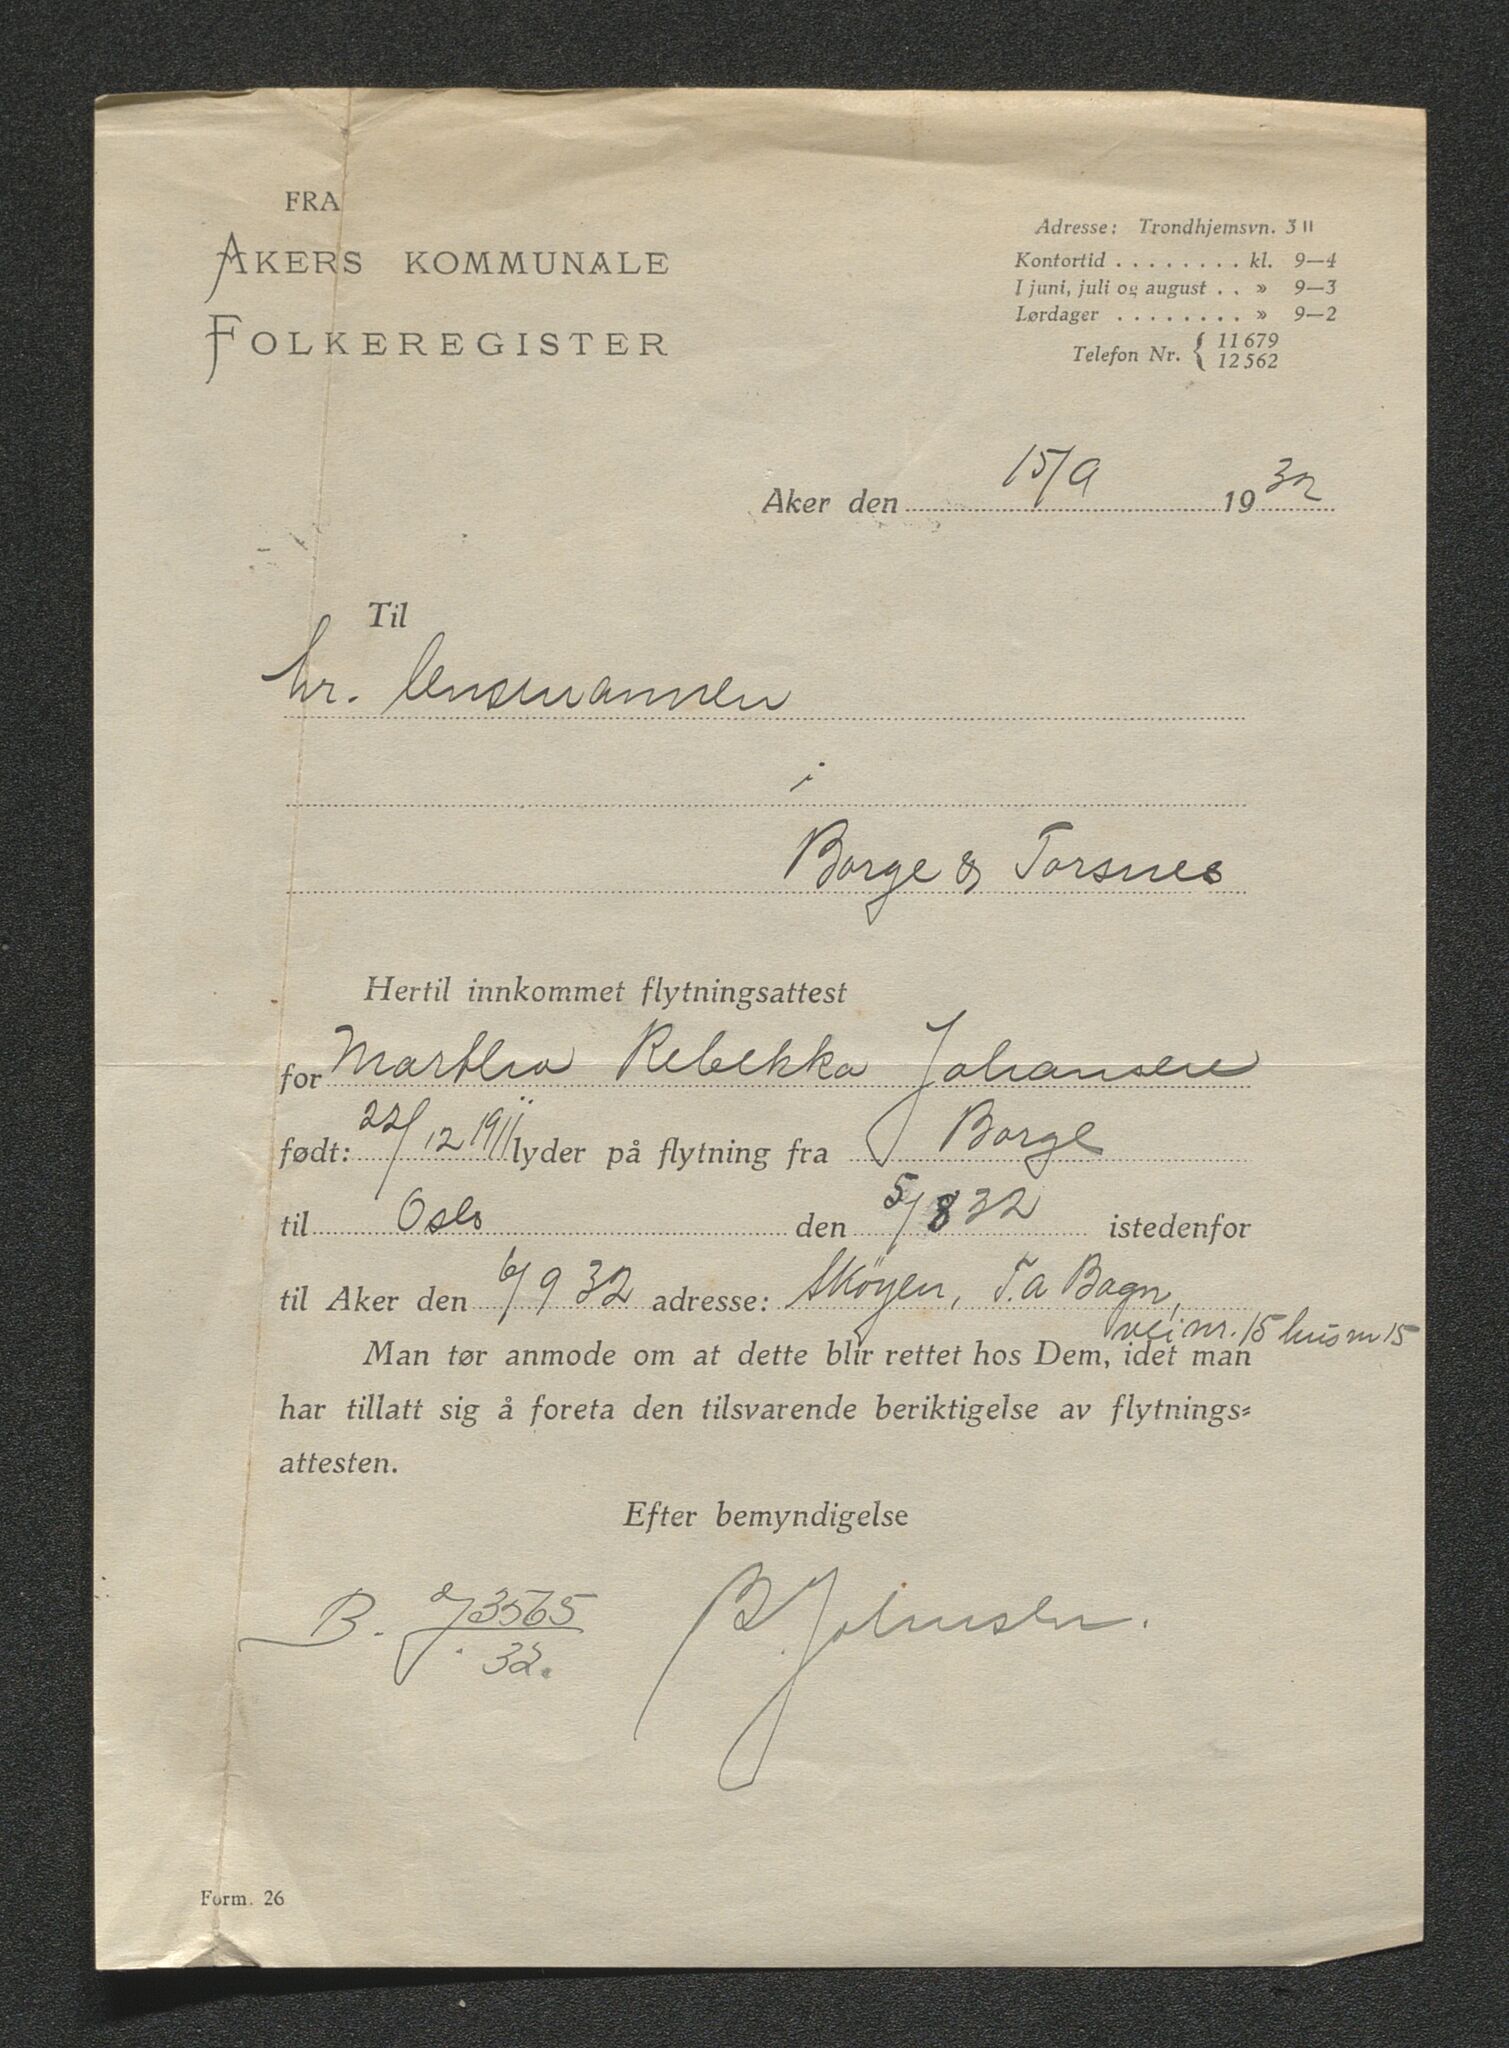 FRA
AKERS KOMMUNALE
FOLKEREGISTER
Adresse: Trondhjemsvn. 3 II
Kontortid . . . . . . . . kl. 9—4
I juni, juli og august . . » 9—3
Lørdager . . . . . . . . » 9—2
Telefon Nr. { 11679
12562
Aker den 15/9 1932
Til
hr. lensmannen
i
Borge & Torsnes
Hertil innkommet flytningsattest
for Martha Rebekka Johansen
født: 22/12 1911 lyder på flytning fra Borge
til Oslo den 5/8 32 istedenfor
til Aker den 6/9 32 adresse: Skøyen, T.a Bagn,
vei nr. 15 hus nr 15
Man tør anmode om at dette blir rettet hos Dem, idet man
har tillatt sig å foreta den tilsvarende beriktigelse av flytnings=
attesten.
Efter bemyndigelse
B. 3565
32.
B Johnsen.
Form. 26